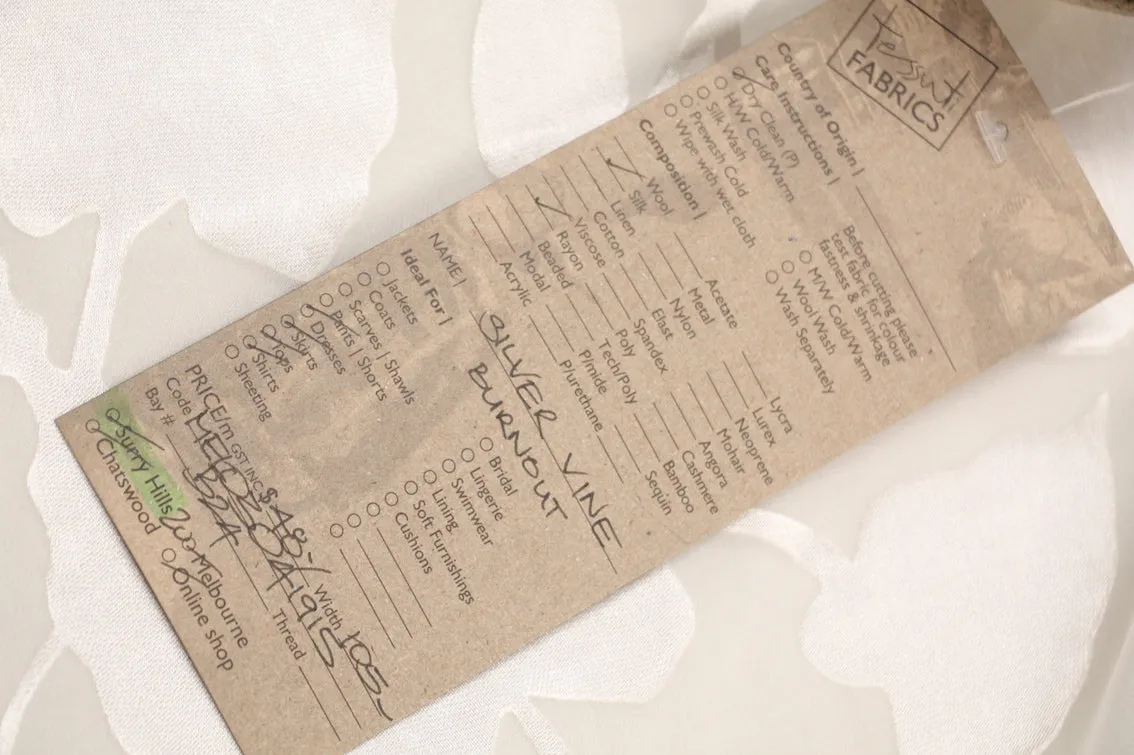 tessuti
FABRICS
Country of Origin |
Care Instructions |
Dry Clean (P)
H/W Cold/Warm
Silk Wash
Prewash Cold
Wipe with wet cloth
Before cutting please
test fabric for colour
fastness & shrinkage
M/W Cold/Warm
Wool Wash
Wash Separately
Composition |
Wool Acetate Lycra
Silk Metal Lurex
Linen Nylon Neoprene
Cotton Elast Mohair
Viscose Spandex Angora
Rayon Poly Cashmere
Beaded Tech/Poly Bamboo
Modal P/mide Sequin
Acrylic P/urethane
NAME | SILVER VINE
BURNOUT
Ideal For |
Jackets Bridal
Coats Lingerie
Scarves | Shawls Swimwear
Pants | Shorts Lining
Dresses Soft Furnishings
Skirts Cushions
Tops
Shirts
Sheeting
PRICE/m GST INC $48- Width 105
Code
Bay # Thread
Surry Hills Melbourne
Chatswood Online shop